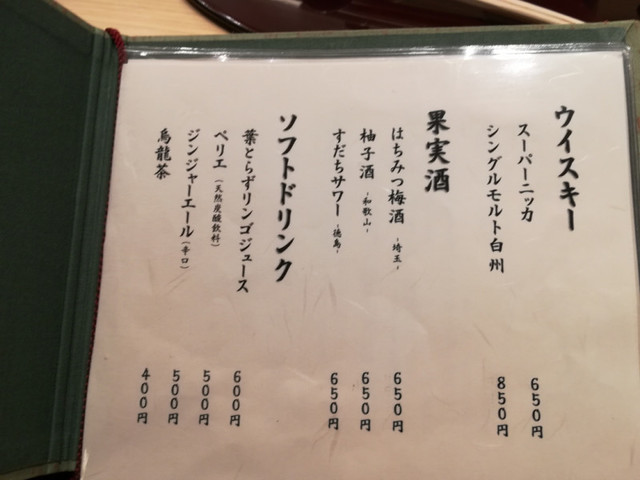 ウイスキー
スーパーニッカ 650円
シングルモルト白州 850円
果実酒
はちみつ梅酒 -埼玉- 650円
柚子酒 -和歌山- 650円
すだちサワー -徳島- 650円
ソフトドリンク
葉とらずリンゴジュース 600円
ペリエ (天然炭酸飲料) 500円
ジンジャーエール (辛口) 500円
烏龍茶 400円